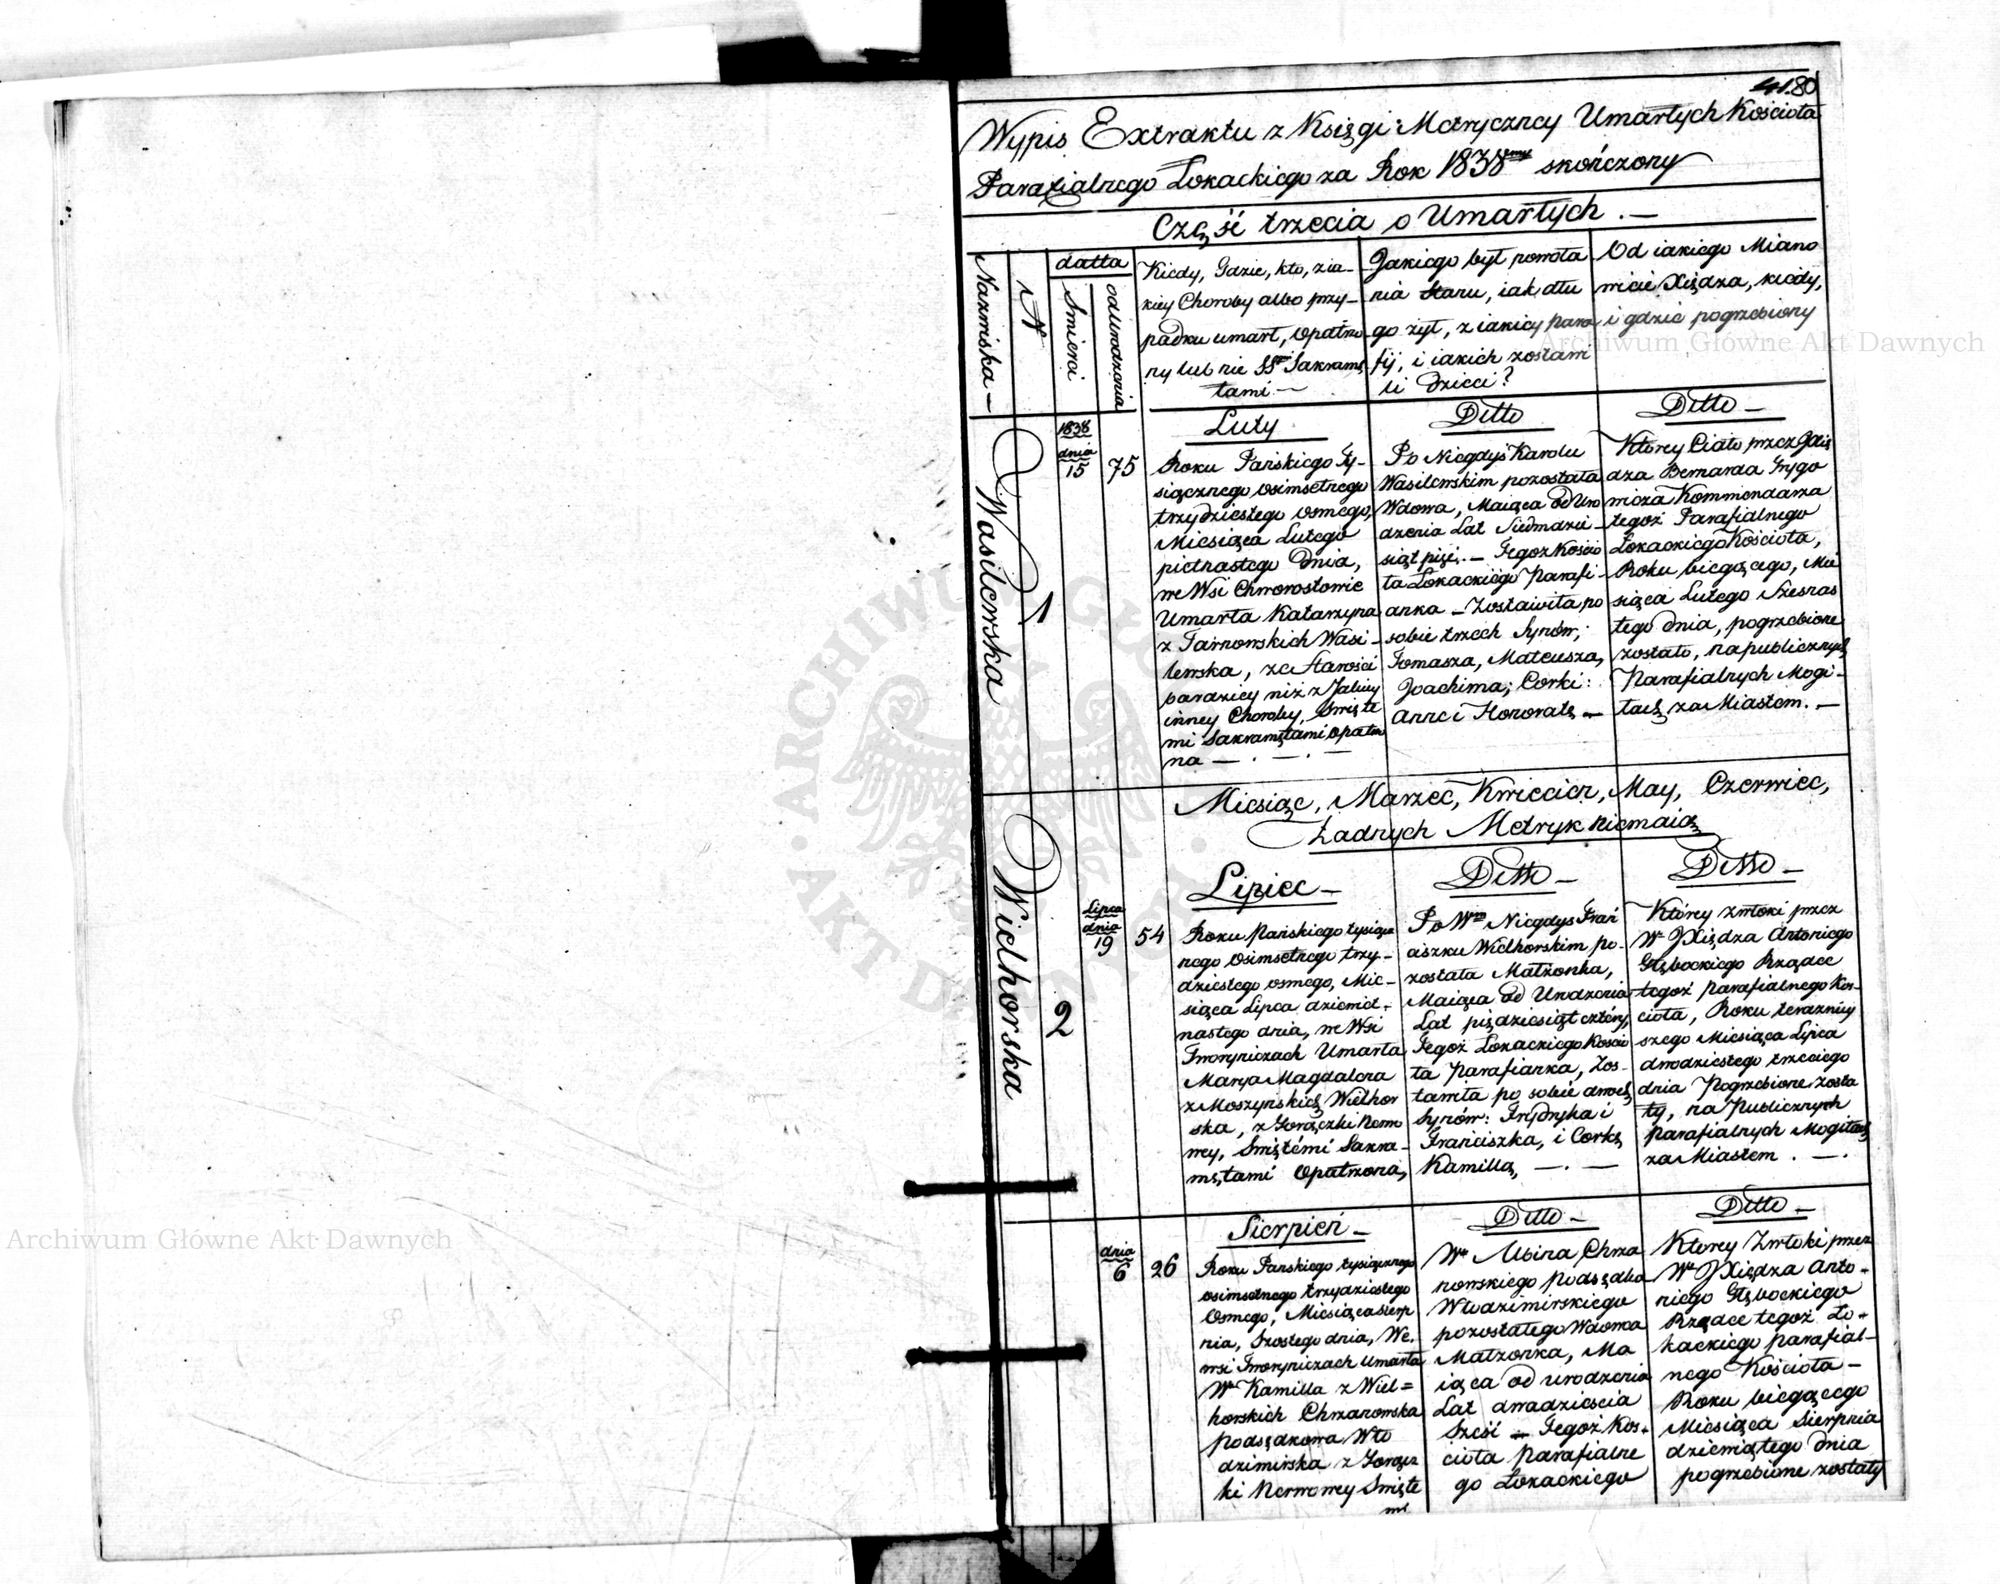 41.80
Wypis Extraktu z Księgi Metryczney Umarłych Kościoła
Parafialnego Łokackiego za Rok 1838my skończony
Część trzecia o Umarłych . —
Nazwiska —
N
datta
Smierci
od urodzenia
Kiedy, Gdzie, kto, z ia-
kiey Choroby albo przy-
padku umarł, opatrzo-
ny lub nie SS Sakramę
tami —
Jakiego był powoła
nia Stanu, iak dłu
go żył, z iakiey para
fij, i iakich zostawi
li dzieci?
Od iakiego Miano
wicie Xiędza, kiedy,
i gdzie pogrzebiony
Wasilewska
1
1838
dnia
15
75
Luty
Roku Pańskiego Ty-
siącznego osimsetnego
trzydziestego osmego,
Miesiąca Lutego
pietnastego Dnia,
we Wsi Chworostowie
Umarła Katarzyna
z Tarnowskich Wasi-
lewska, ze Starości
bardziey niż z Jakiey
inney Choroby, Święte
mi Sakramętami opatrzo
na — . — . —
Ditto
Po Niegdyś Karolu
Wasilewskim pozostała
Wdowa, Maiąca od Uro
dzenia Lat Siedmdzie-
siąt pięć. — Tegoż Kościo
ła Łokackiego Parafi-
anka — Zostawiła po
sobie trzech Synów;
Tomasza, Mateusza,
Joachima; Corki:
Annę i Honoratę —
Ditto —
Którey Ciało przez Xię
dza Bernarda Grygo
wicza Kommendarza
tegoż Parafialnego
Łokackiego Kościoła,
Roku biegącego, Mie
siąca Lutego Szesnas
tego dnia, pogrzebione
zostało, na publicznych
Parafialnych Mogi-
łach za Miastem. —
Miesiąc, Marzec, Kwiecień, May, Czerwiec,
Żadnych Metryk niemaią
Wielhorska
2
Lipca
dnia
19
54
Lipiec —
Roku Pańskiego tysiącz
nego osimsetnego trzy-
dziestego osmego, Mie-
siąca Lipca dziewięt-
nastego dnia, we Wsi
Tworyniczach Umarła
Marya Magdalena
z Moszyńskich Wielhor
ska, z Gorączki Nerwo
wey, Świętémi Sakra-
mętami Opatrzona,
Ditto —
Po Wm Niegdyś Fran
ciszku Wielhorskim po-
została Małżonka,
Maiąca od Urodzenia
Lat pięćdziesiąt cztéry,
Tegoż Łokackiego Kościo
ła Parafianka, Zos-
tawiła po sobie dwoch
Synów: Frydryka i
Franciszka, i Corkę
Kamillę, — . —
Ditto —
Którey zwłoki przez
W JXiędza Antoniego
Głębockiego Rządcę
tegoż parafialnego Koś-
cioła, Roku terazniey
szego Miesiąca Lipca
dwodziestego trzeciego
dnia Pogrzebione zosta
ły, na Publicznych
parafialnych Mogiłach
za Miastem . — .
dnia
6
26
Sierpień —
Roku Pańskiego tysiącznego
osimsetnego trzydziestego
Osmego, Miesiąca Sierp
nia, Szostego dnia, We.
wsi Tworyniczach Umarła
Wa Kamilla z Wiel=
horskich Chrzanowska
podsędkowa Wło
dzimirska z Gorącz
ki Nerwowey Święte
mi
Ditto —
Wo Albina Chrza
nowskiego podsędka
Włodzimirskiego
pozostałego Wdowca
Małżonka, Ma
iąca od urodzenia
Lat dwadzieścia
Sześć — Tegoż Koś-
cioła Parafialne
go Łokackiego
Ditto —
Którey Zwłoki przez
W JXiędza Anto-
niego Głębockiego
Rządce tegoż Ło-
kackiego parafial-
nego Kościoła —
Roku biegącego
Miesiąca Sierpnia
dziewiątego dnia
pogrzebione zostały
Archiwum Główne Akt Dawnych
Archiwum Główne Akt Dawnych
ARCHIWUM GŁÓWNE · AKT DAWNYCH ·